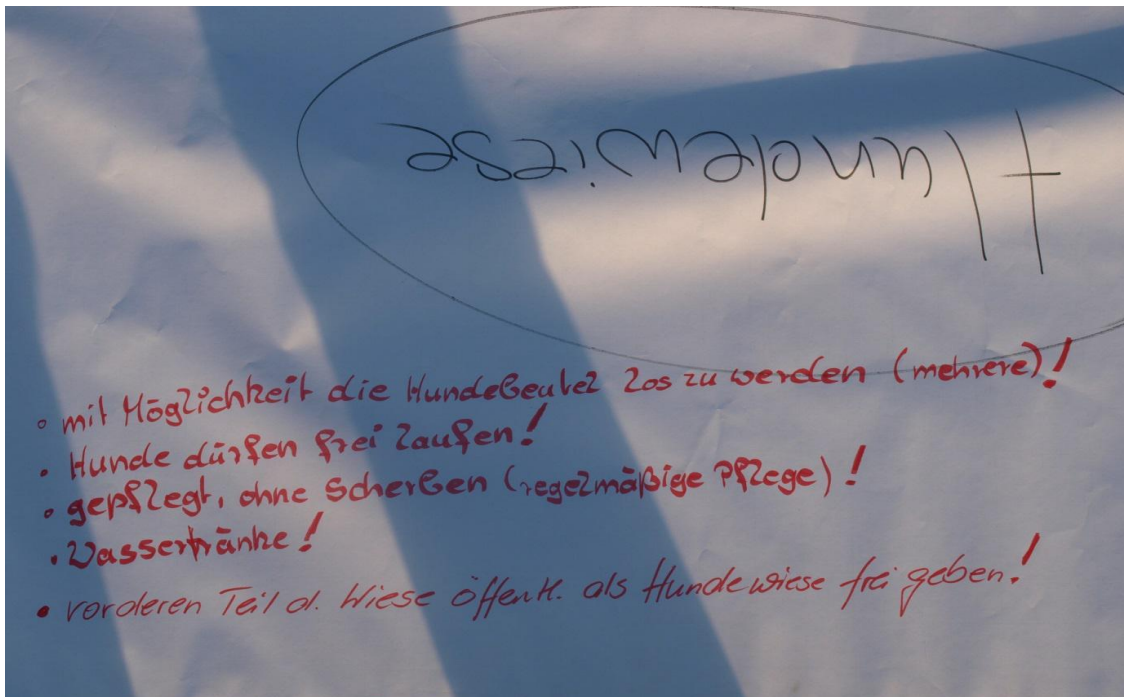 Hundewiese
• mit Möglichkeit die Hundebeutel los zu werden (mehrere)!
• Hunde dürfen frei laufen!
• gepflegt, ohne Scherben (regelmäßige Pflege)!
• Wassertränke!
• vorderen Teil d. Wiese öffentl. als Hundewiese frei geben!